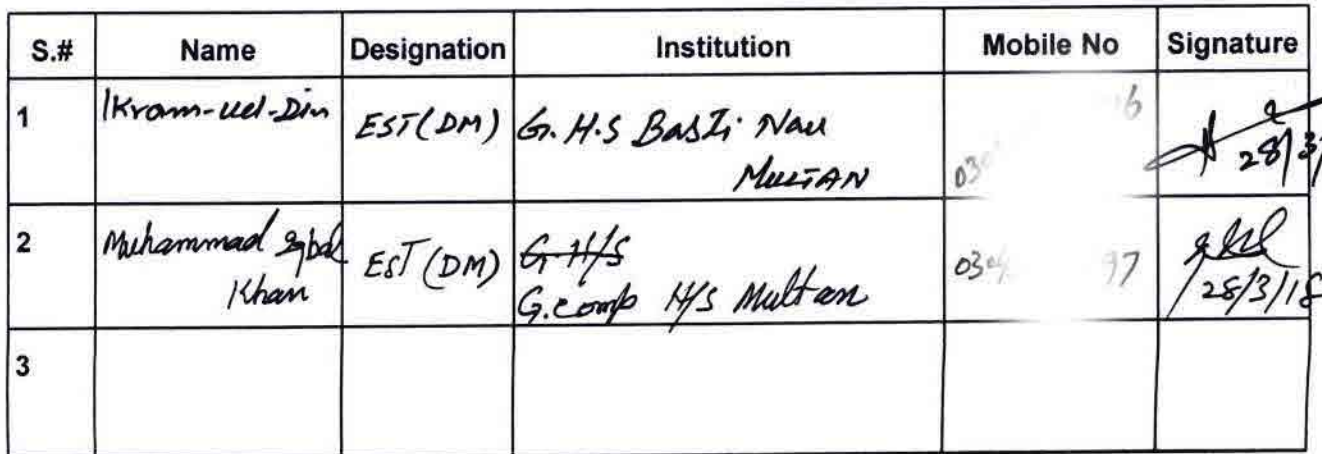 S.# Name Designation Institution Mobile No Signature
1 Ikram-uel-Din EST(DM) G.H.S Basti Nau
MULTAN
28/3/
2 Muhammad Iqbal EST(DM) G H/S
Khan G.comp H/S Multan
28/3/18
3